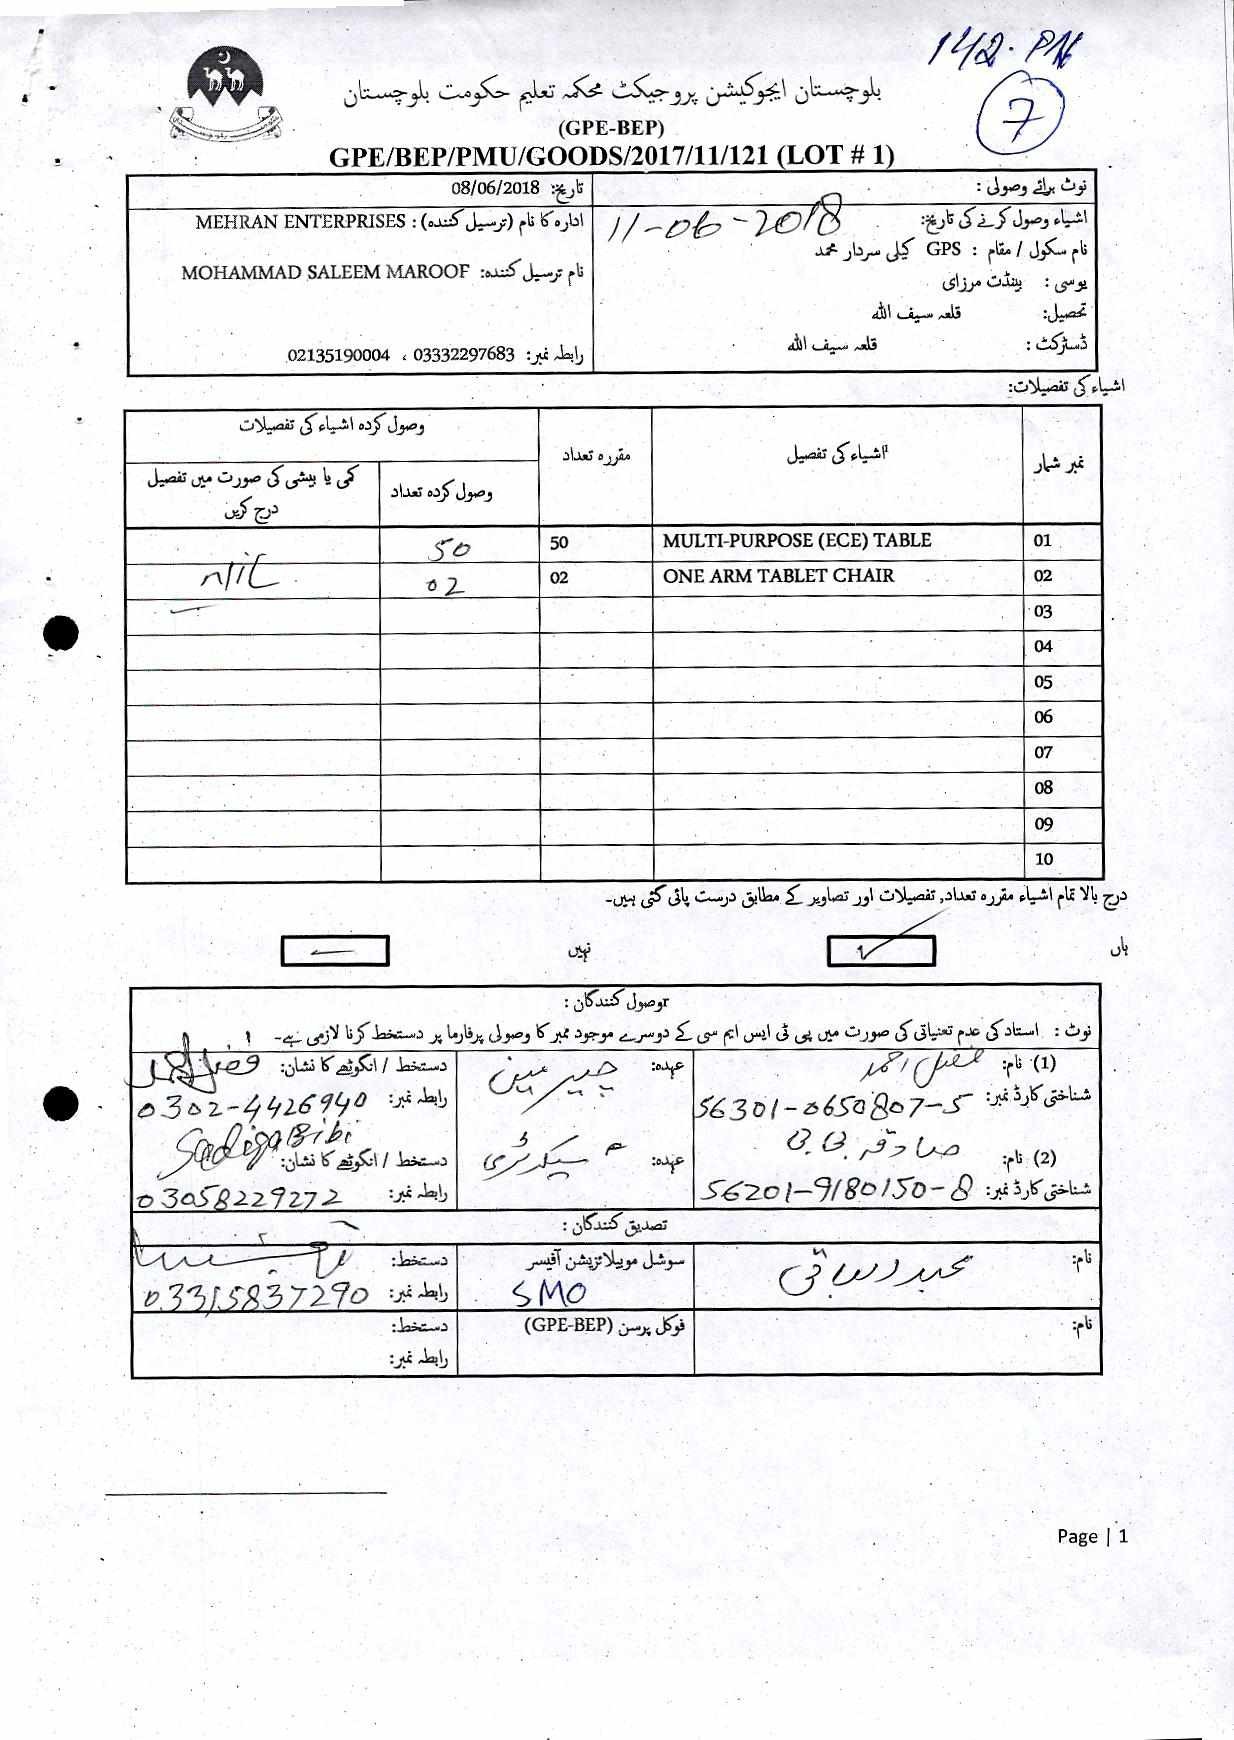 142. PN
7
بلوچستان ایجوکیشن پروجیکٹ محکمہ تعلیم حکومت بلوچستان
(GPE-BEP)
GPE/BEP/PMU/GOODS/2017/11/121 (LOT # 1)
نوٹ برائے وصولی :
تاریخ: 08/06/2018
اشیاء وصول کرنے کی تاریخ: 11-06-2018
ادارہ کا نام (ترسیل کنندہ) : MEHRAN ENTERPRISES
نام سکول / مقام : GPS کیلی سردار محمد
نام ترسیل کنندہ: MOHAMMAD SALEEM MAROOF
یو سی : پنڈت مرزای
تحصیل: قلعہ سیف اللہ
ڈسٹرکٹ : قلعہ سیف اللہ
رابطہ نمبر: 03332297683 ، 02135190004
اشیاء کی تفصیلات:
نمبر شمار اشیاء کی تفصیل مقررہ تعداد وصول کردہ اشیاء کی تفصیلات
وصول کردہ تعداد کمی یا بیشی کی صورت میں تفصیل درج کریں
01 MULTI-PURPOSE (ECE) TABLE 50 50
02 ONE ARM TABLET CHAIR 02 02 nil
03
04
05
06
07
08
09
10
درج بالا تمام اشیاء مقررہ تعداد, تفصیلات اور تصاویر کے مطابق درست پائی گئی ہیں۔
ہاں نہیں
وصول کنندگان :
نوٹ : استاد کی عدم تعیناتی کی صورت میں پی ٹی ایس ایم سی کے دوسرے موجود ممبر کا وصولی پرفارما پر دستخط کرنا لازمی ہے۔
(1) نام: فضل احمد عہدہ: چیرمین دستخط / انگوٹھے کا نشان: فضل احمد
شناختی کارڈ نمبر: 56301-0650807-5 رابطہ نمبر: 0302-4426940
(2) نام: صادقہ بی بی عہدہ: سیکرٹری دستخط / انگوٹھے کا نشان: Sadiqa Bibi
شناختی کارڈ نمبر: 56201-9180150-8 رابطہ نمبر: 03058229272
تصدیق کنندگان :
نام: سوشل موبیلائزیشن آفیسر دستخط:
SMO رابطہ نمبر: 03315837290
نام: فوکل پرسن (GPE-BEP) دستخط:
رابطہ نمبر:
Page | 1